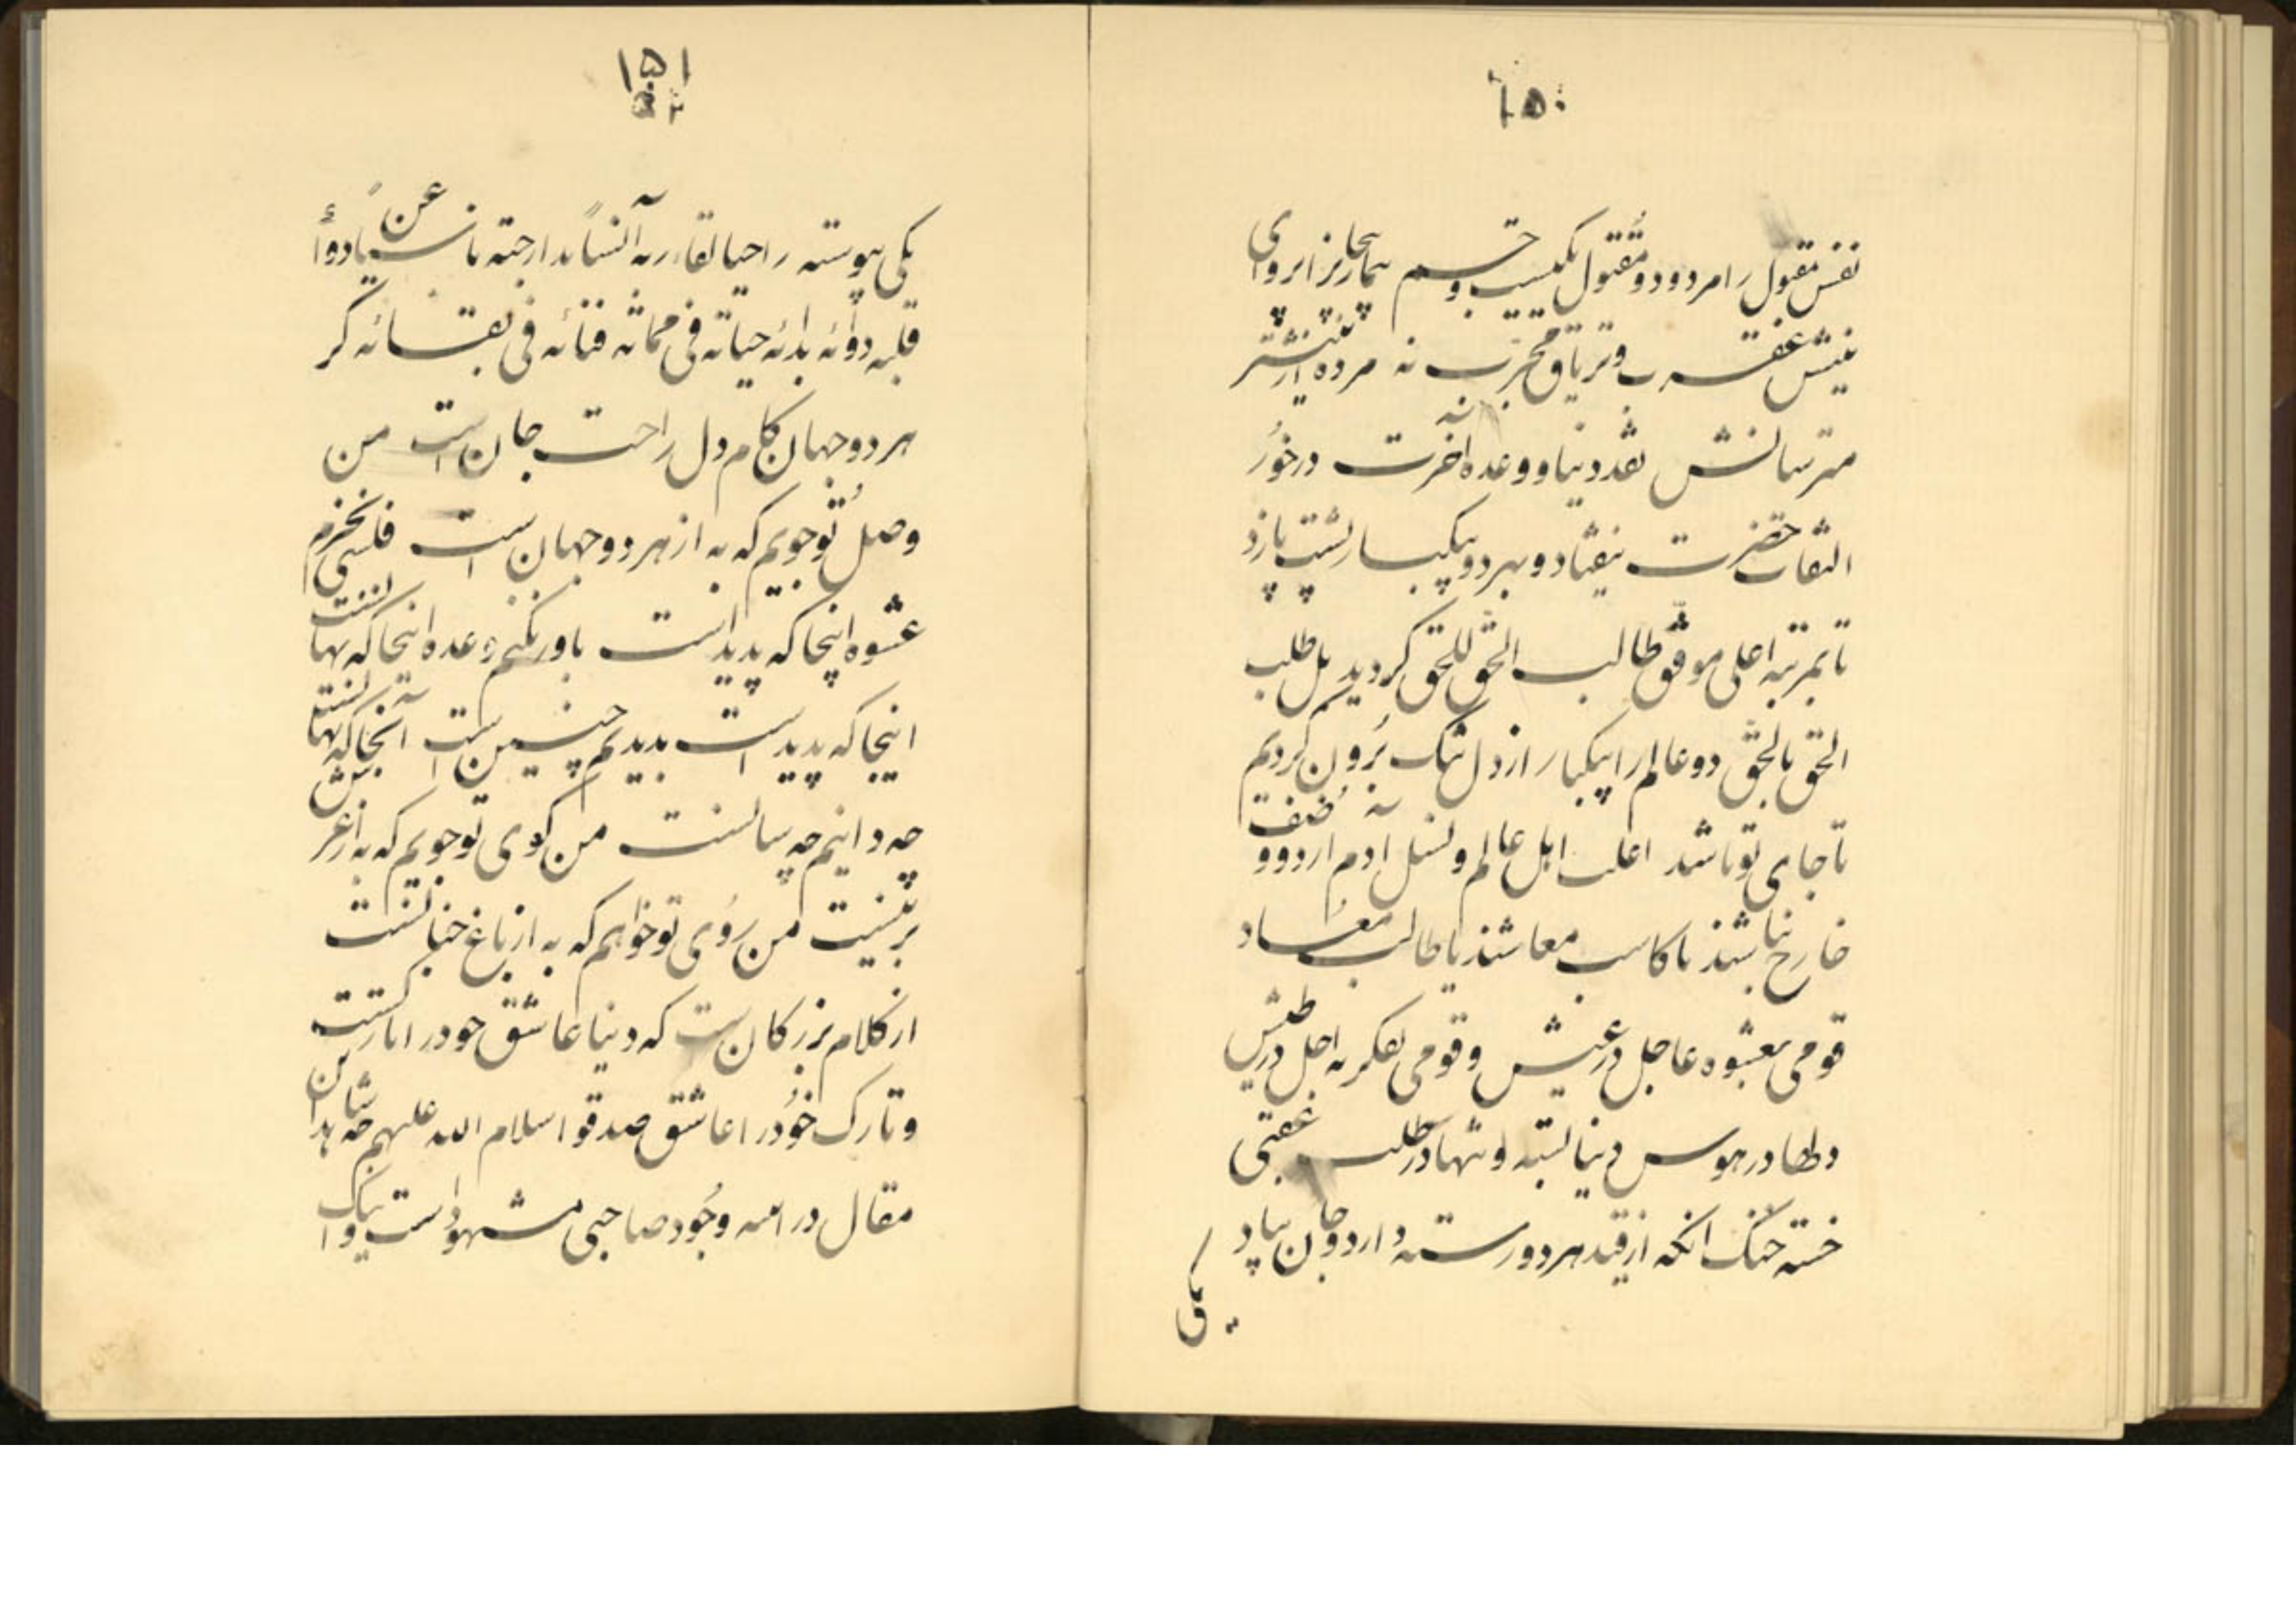 ۱۵۰
نفس مقبول را مردود و مقتول یکیست و چشم بیمار نزار بروای
نیش عقرب و تریاق مجرب نه مرده از نیشتر
مترسانش نقد دنیا و وعده اخرت نه درخور
التفات حضرت نیفتاد و بهر دو بیکبار پشت پا زد
تا بمرتبه اعلی موفق طالب الحق للحق گردید بل طلب
الحق بالحق دو عالم را بیکبار از دل تنک برون کردیم
تا جای تو باشد اغلب اهل عالم و نسل ادم از دو صنف
خارج نباشند یا کاسب معاشند یا طالب معاد
قومی بعشوه عاجل در عیش و قومی بفکر اجل در طیش
دلها در هوس دنیا بسته و تنها در طلب عقبی
خسته خنک انکه از قید هر دو رسته دارد و جان بیاد
یکی
۱۵۱
یکی پیوسته راحیا لقا ربه آنسا بدا رجته ناسیا عن دوا
قلبه دوائه بدائه حیاته فی مماته فنائه فی بقائه کر
هر دو جهان کام دل راحت جان است من
وصل تو جویم که به از هر دو جهان است فلسی نخرم
عشوه اینجا که پدید است باور نکنم وعده انجا که نهانست
اینجا که پدید است بدیدیم چنین است آنجا که نهانست
چه دانیم چه سانست من کوی تو جویم که به از عرش
برینست من روی تو خواهم که به از باغ جنانست
از کلام بزرکان است که دنیا عاشق خود را تارکست
و تارک خود را عاشق صدقوا سلام الله علیهم چه شاهد این
مقال در وجود صاحبی مشهود است و اینک